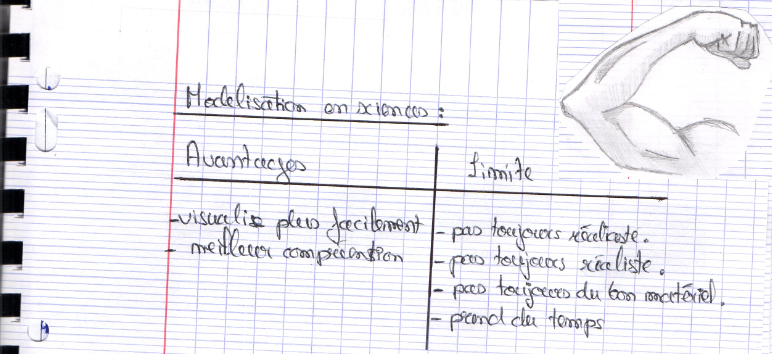 Modelisation en sciences :
Avantages
limite
- visualise plus facilement
- meilleur comprecension
- pas toujours réaliste.
- pas toujours réaliste.
- pas toujours du bon matériel.
- prend du temps